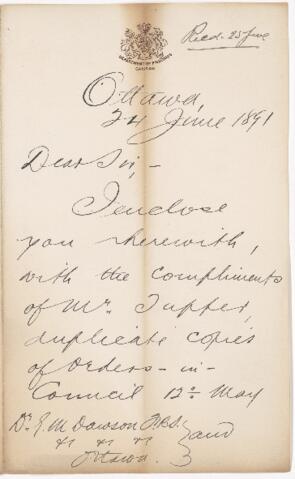 Recd. 25 June
DEPARTMENT OF FISHERIES
CANADA
Ottawa,
24 June 1891
Dear Sir,-
I enclose
you herewith,
with the compliments
of Mr. Tupper,
duplicate copies
of Orders-in-
Council 12th May
Dr. G. M. Dawson
&c &c &c and
Ottawa.